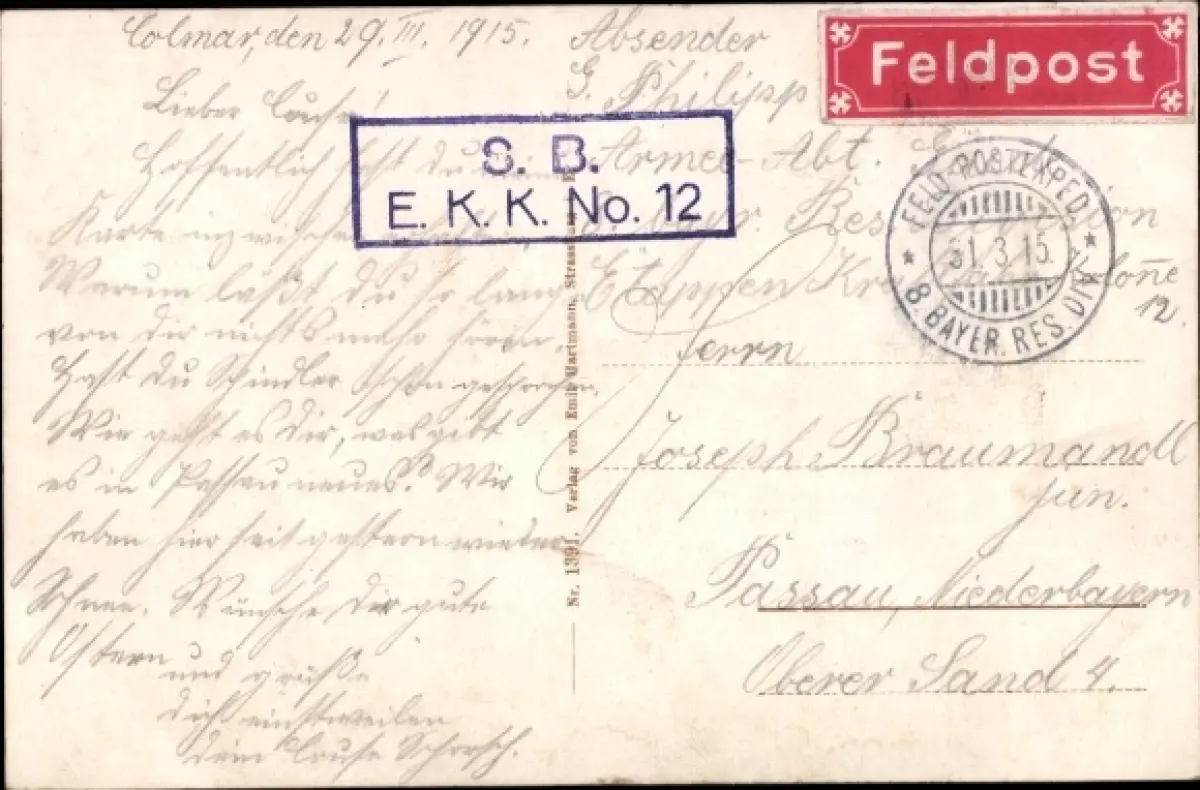 Colmar, den 29. III. 1915.
Lieber
Hoffentlich hast du
Karte inzwischen
Warum läßt du so lang
von dir nichts mehr hören.
Hast du Schindler schon gesprochen.
Wie geht es dir, was gibt
es in Passau neues? Wir
haben hier seit gestern wieder
Schnee. Wünsche dir gute
Ostern und grüße
dich einstweilen
dein Schorsch.
Absender
G. Philipp
Armee-Abt.
Res.
Etappen
12.
Feldpost
S. B.
E. K. K. No. 12
FELD-POSTEXPED.
31.3.15.
8. BAYER. RES. DIV.
Nr. 1391. Verlag vom Emil Hartmann, Strassburg
Herrn
Joseph Braumandl
jun.
Passau, Niederbayern
Oberer Sand 4.